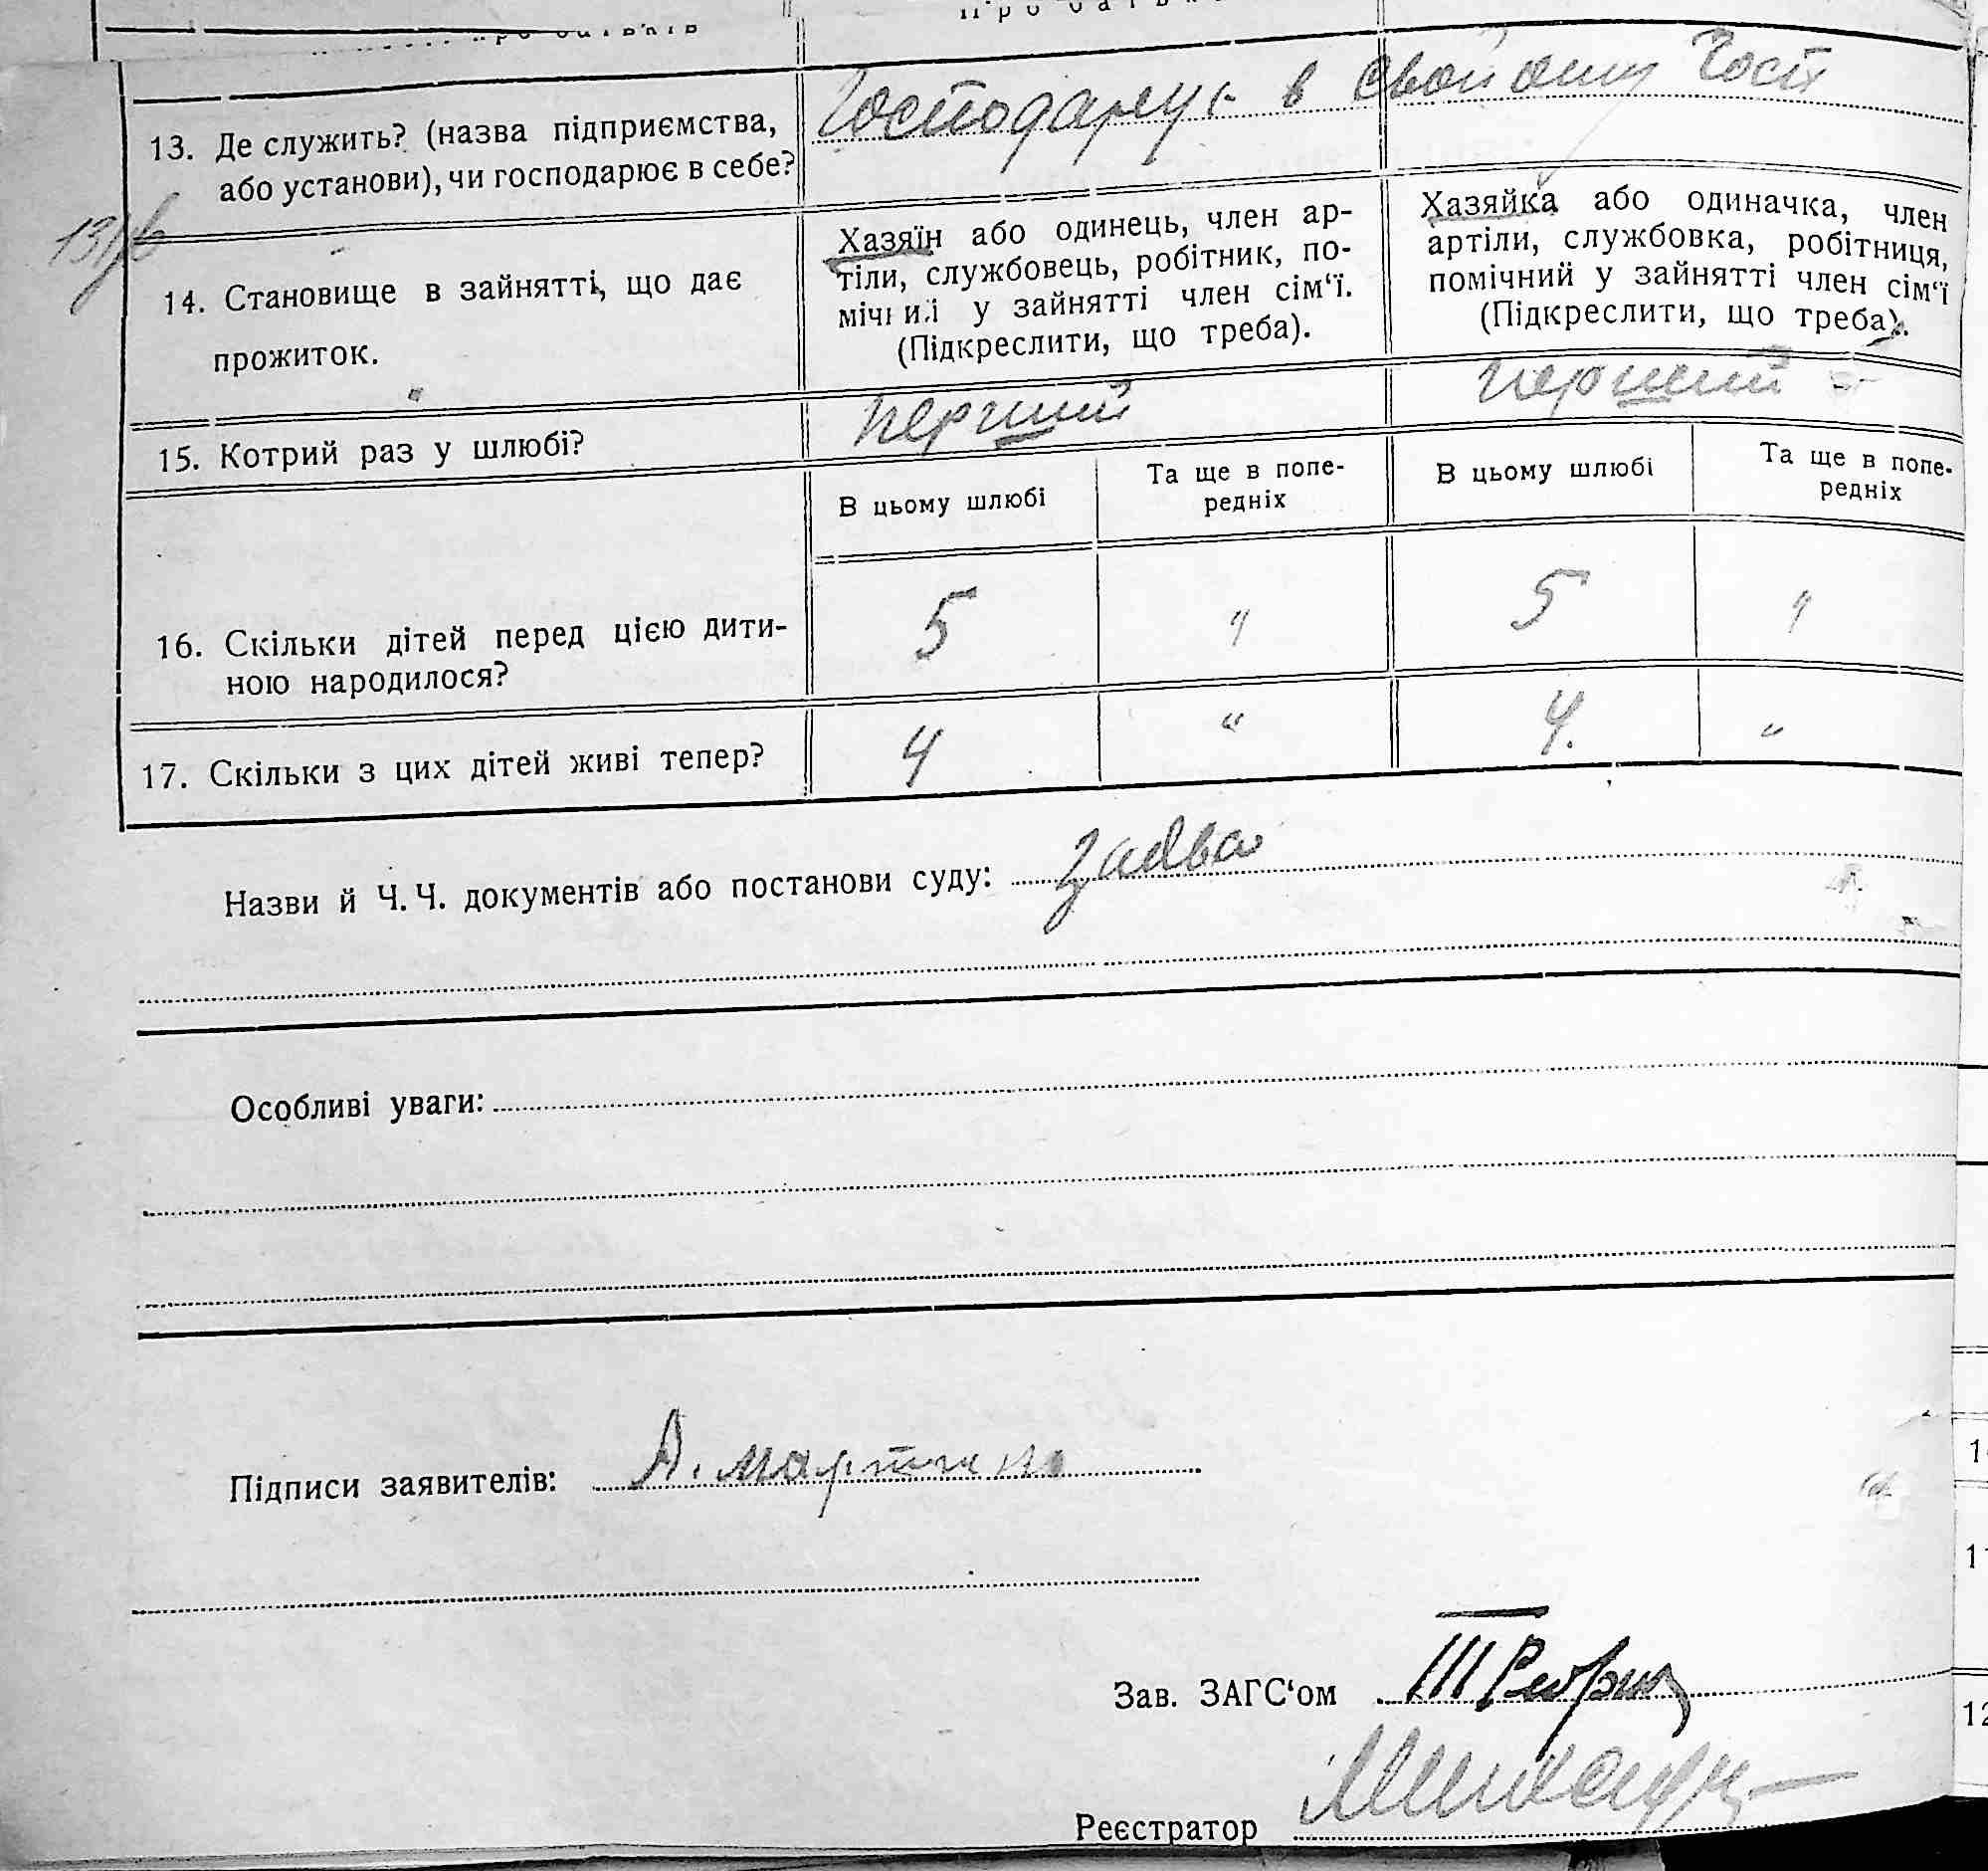 13. Де служить? (назва підприємства,
або установи), чи господарює в себе?
Господарує в свойому Гості
14. Становище в зайнятті, що дає
прожиток.
Хазяїн або одинець, член ар-
тіли, службовець, робітник, по-
мічний у зайнятті член сім‘ї.
(Підкреслити, що треба).
Хазяйка або одиначка, член
артіли, службовка, робітниця,
помічний у зайнятті член сім‘ї
(Підкреслити, що треба).
15. Котрий раз у шлюбі?
перший
перший
В цьому шлюбі
Та ще в попе-
редніх
В цьому шлюбі
Та ще в попе-
редніх
16. Скільки дітей перед цією дити-
ною народилося?
5 " 5 "
17. Скільки з цих дітей живі тепер?
4 " 4. "
Назви й Ч. Ч. документів або постанови суду: заява
Особливі уваги:
Підписи заявителів: А.
Зав. ЗАГС‘ом
Реєстратор